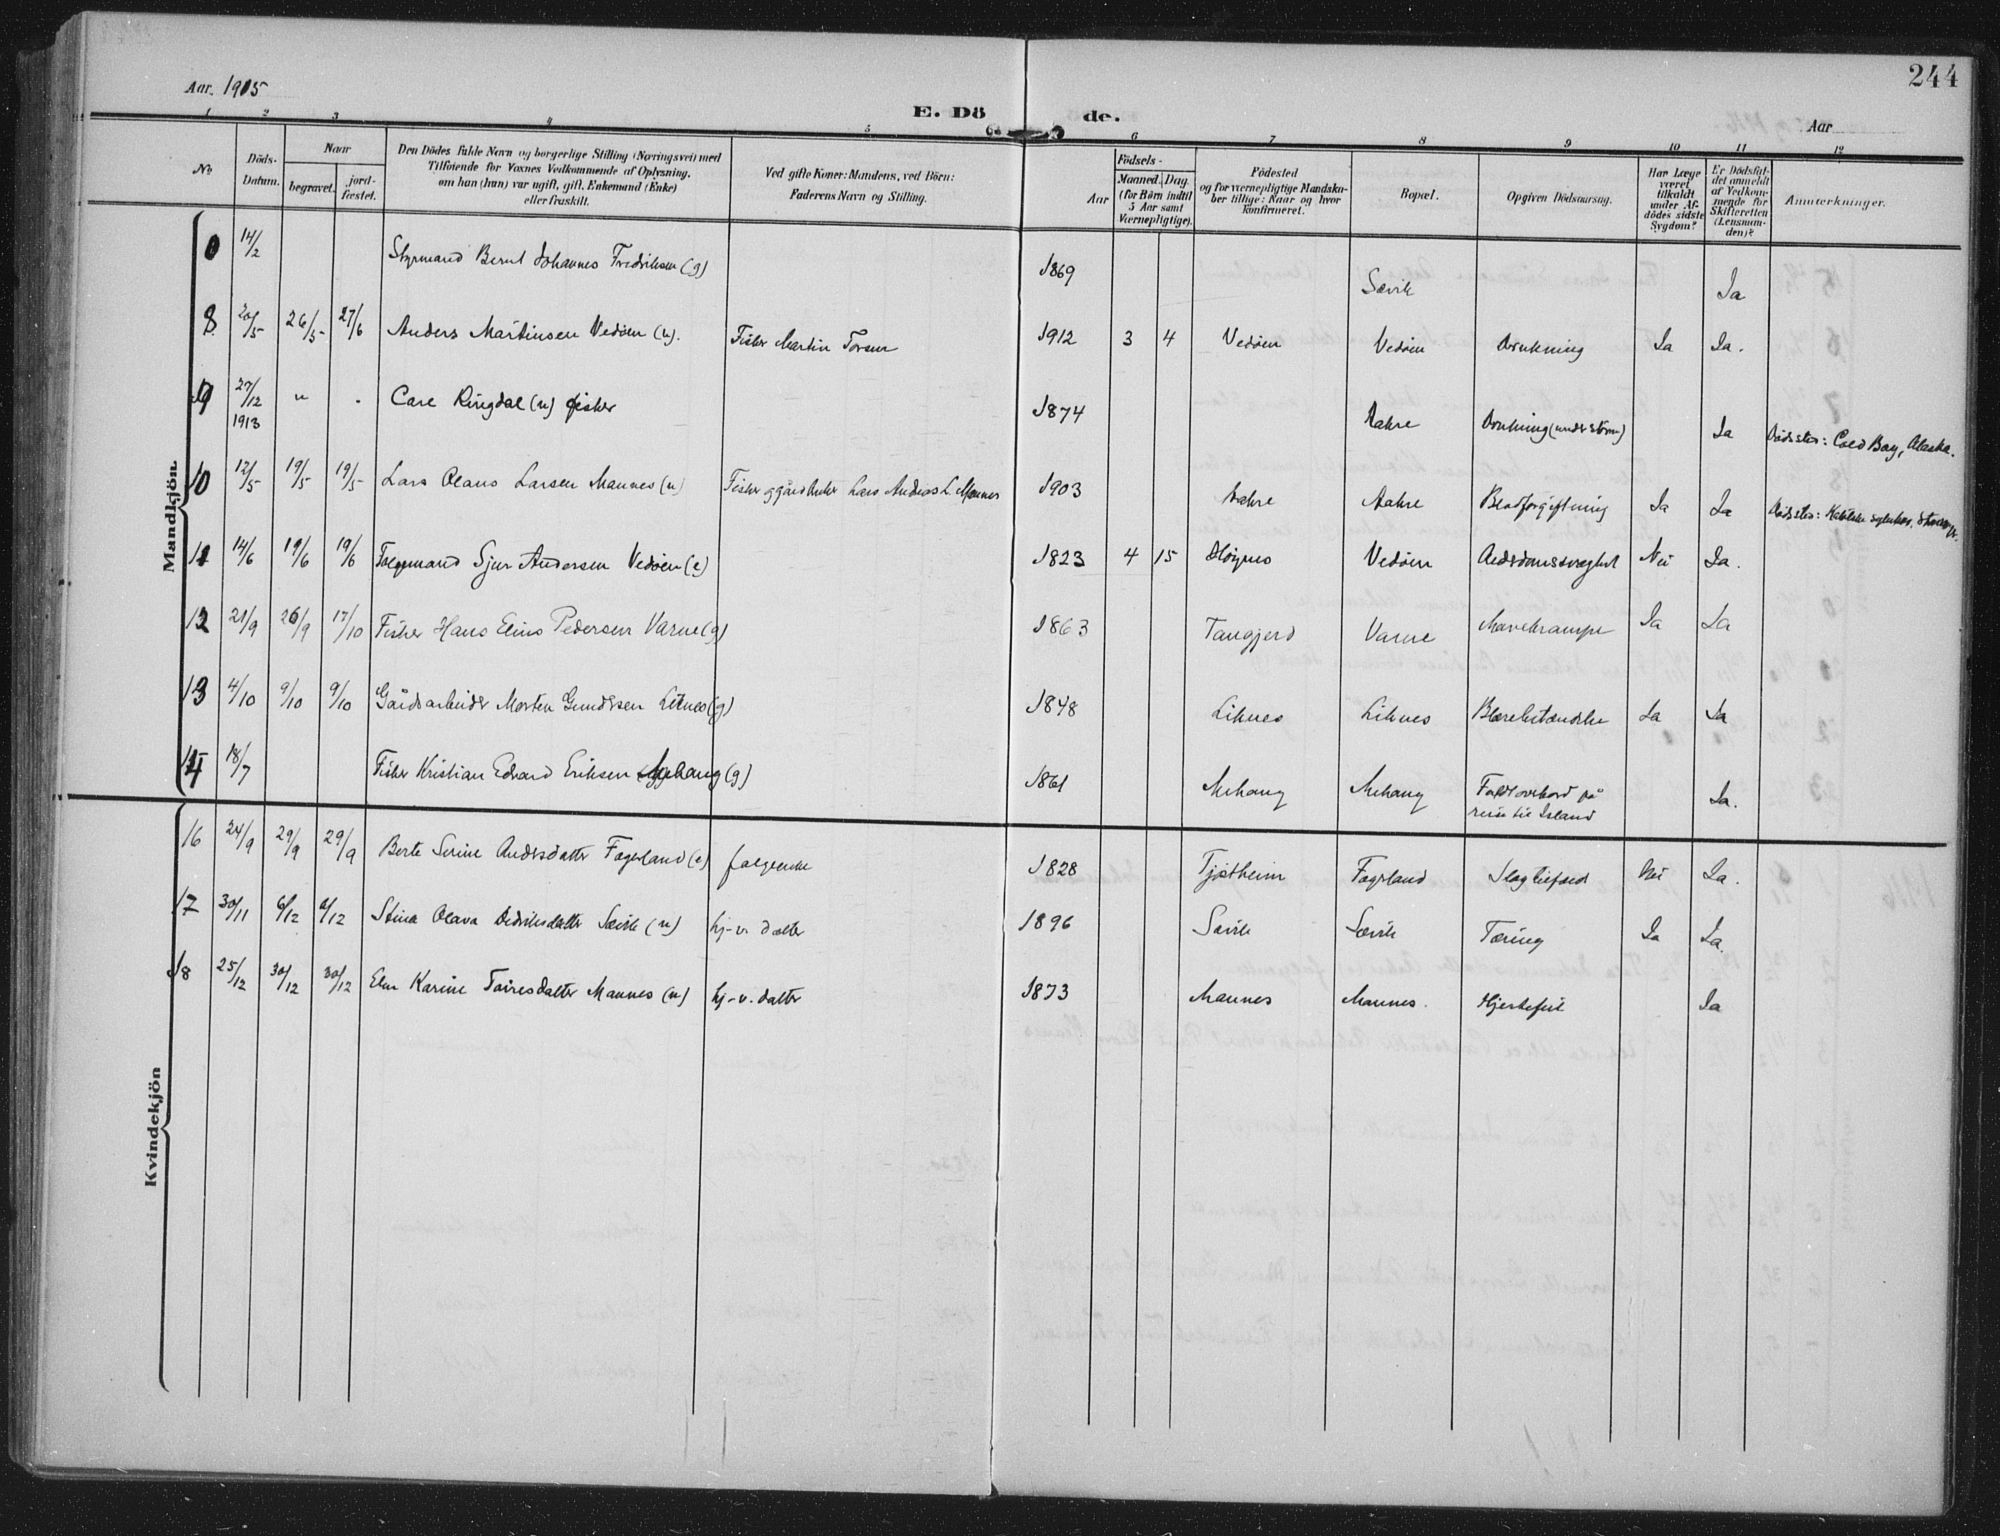 244
Aar. 1915
E. Dö de.
Aar
1 2 3 4 5 6 6 7 8 9 10 11 12
No.
Döds-Datum.
Naar
begravet.
jord-fæstet.
Den Dödes fulde Navn og borgerlige Stilling (Næringsvei) med
Tilföiende for Voxnes Vedkommende af Oplysning,
om han (hun) var ugift, gift, Enkemand (Enke)
eller fraskilt.
Ved gifte Koner: Mandens, ved Börn:
Faderens Navn og Stilling.
Födsels-
Aar
Maaned. Dag.
(for Börn indtil
5 Aar samt
Værnepligtige).
Födested
og for værnepligtige Mandska-
ber tillige: Naar og hvor
konfirmeret.
Bopæl.
Opgiven Dödsaarsag.
Har Læge
været
tilkaldt
under Af-
dödes sidste
Sygdom?
Er Dödsfal-
det anmeldt
af Vedkom-
mende for
Skifteretten
(Lensman-
den)?
Anmærkninger.
Mandkjön.
14/2 Styrmand Bernt Johannes Fredriksen (g) 1869 Sævik Ja
8 20/5 26/5 27/6 Anders Martinsen Vedøen (u). Fisker Martin Torsen 1912 3 4 Vedøen Vedøen Drukning Ja Ja.
9 27/12 1913 " . Carl Ringdal (u) fisker 1874 Aakre Drukning (under storm) Ja Dødssted: Cold Bay, Alaska.
10 12/5 19/5 19/5 Lars Olaus Larsen Mannes (u) Fisker og gårdbruker Lars Andreas L. Mannes 1903 Aakre Aakre Blodforgiftning Ja Ja Dødssted:
11 14/6 19/6 19/6 Følgemand Sjur Andersen Vedøen (e) 1823 4 15 Høynes Vedøen Alderdomssvaghet Nei Ja.
12 21/9 26/9 17/10 Fisker Hans Elius Pedersen Varne (g) 1863 Tangjerd Varne Mavekrampe Ja Ja
13 4/10 9/10 9/10 Gårdsarbeider Morten Gundersen Liknes (g) 1848 Liknes Liknes Blærebetændelse Ja Ja
14 18/7 Fisker Kristian Edvard Eriksen Mehaug (g) 1861 Mehaug Mehaug Faldt overbord på
reise til Island Ja.
Kvindekjön
16 24/9 29/9 29/9 Berte Serine Andersdatter Fagerland (e) følgeenke 1828 Tjøstheim Fagerland Slagtilfæld Nei Ja.
17 30/11 6/12 6/12 Stina Olava Didriksdatter Sævik (u) hj-v. datter 1896 Sævik Sævik Tæring Ja Ja.
18 25/12 30/12 30/12 Elen Karine Toresdatter Mannes (u) hj-v. datter 1873 Mannes Mannes. Hjertefeil Ja